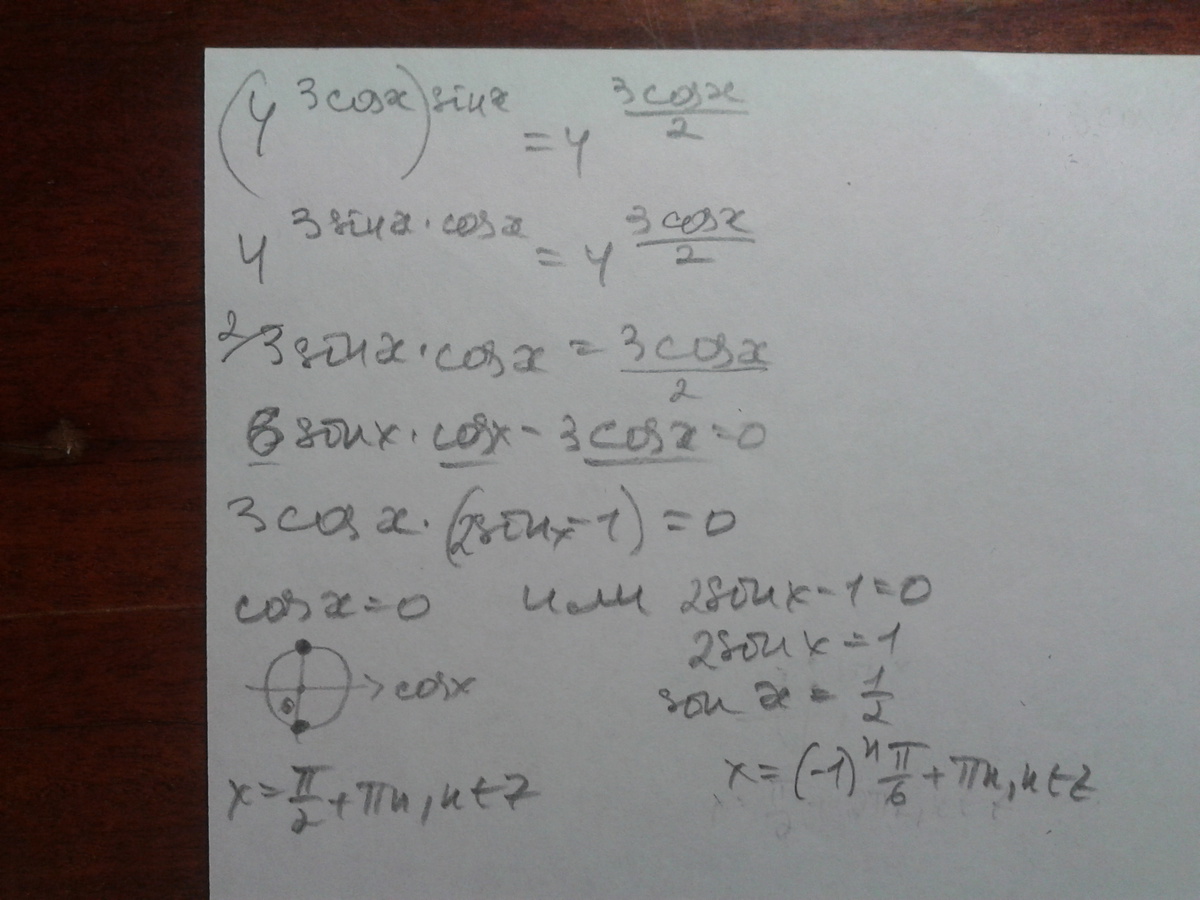 (4^{3cosx})^{sinx} = 4^{\frac{3cosx}{2}}
4^{3sinx·cosx} = 4^{\frac{3cosx}{2}}
2/ 3sinx·cosx = \frac{3cosx}{2}
6sinx·cosx - 3cosx = 0
3cosx·(2sinx-1) = 0
cosx=0 или 2sinx-1=0
2sinx=1
cosx
sinx = \frac{1}{2}
x = \frac{π}{2} + πn, n∈Z
x = (-1)^n \frac{π}{6} + πn, n∈Z